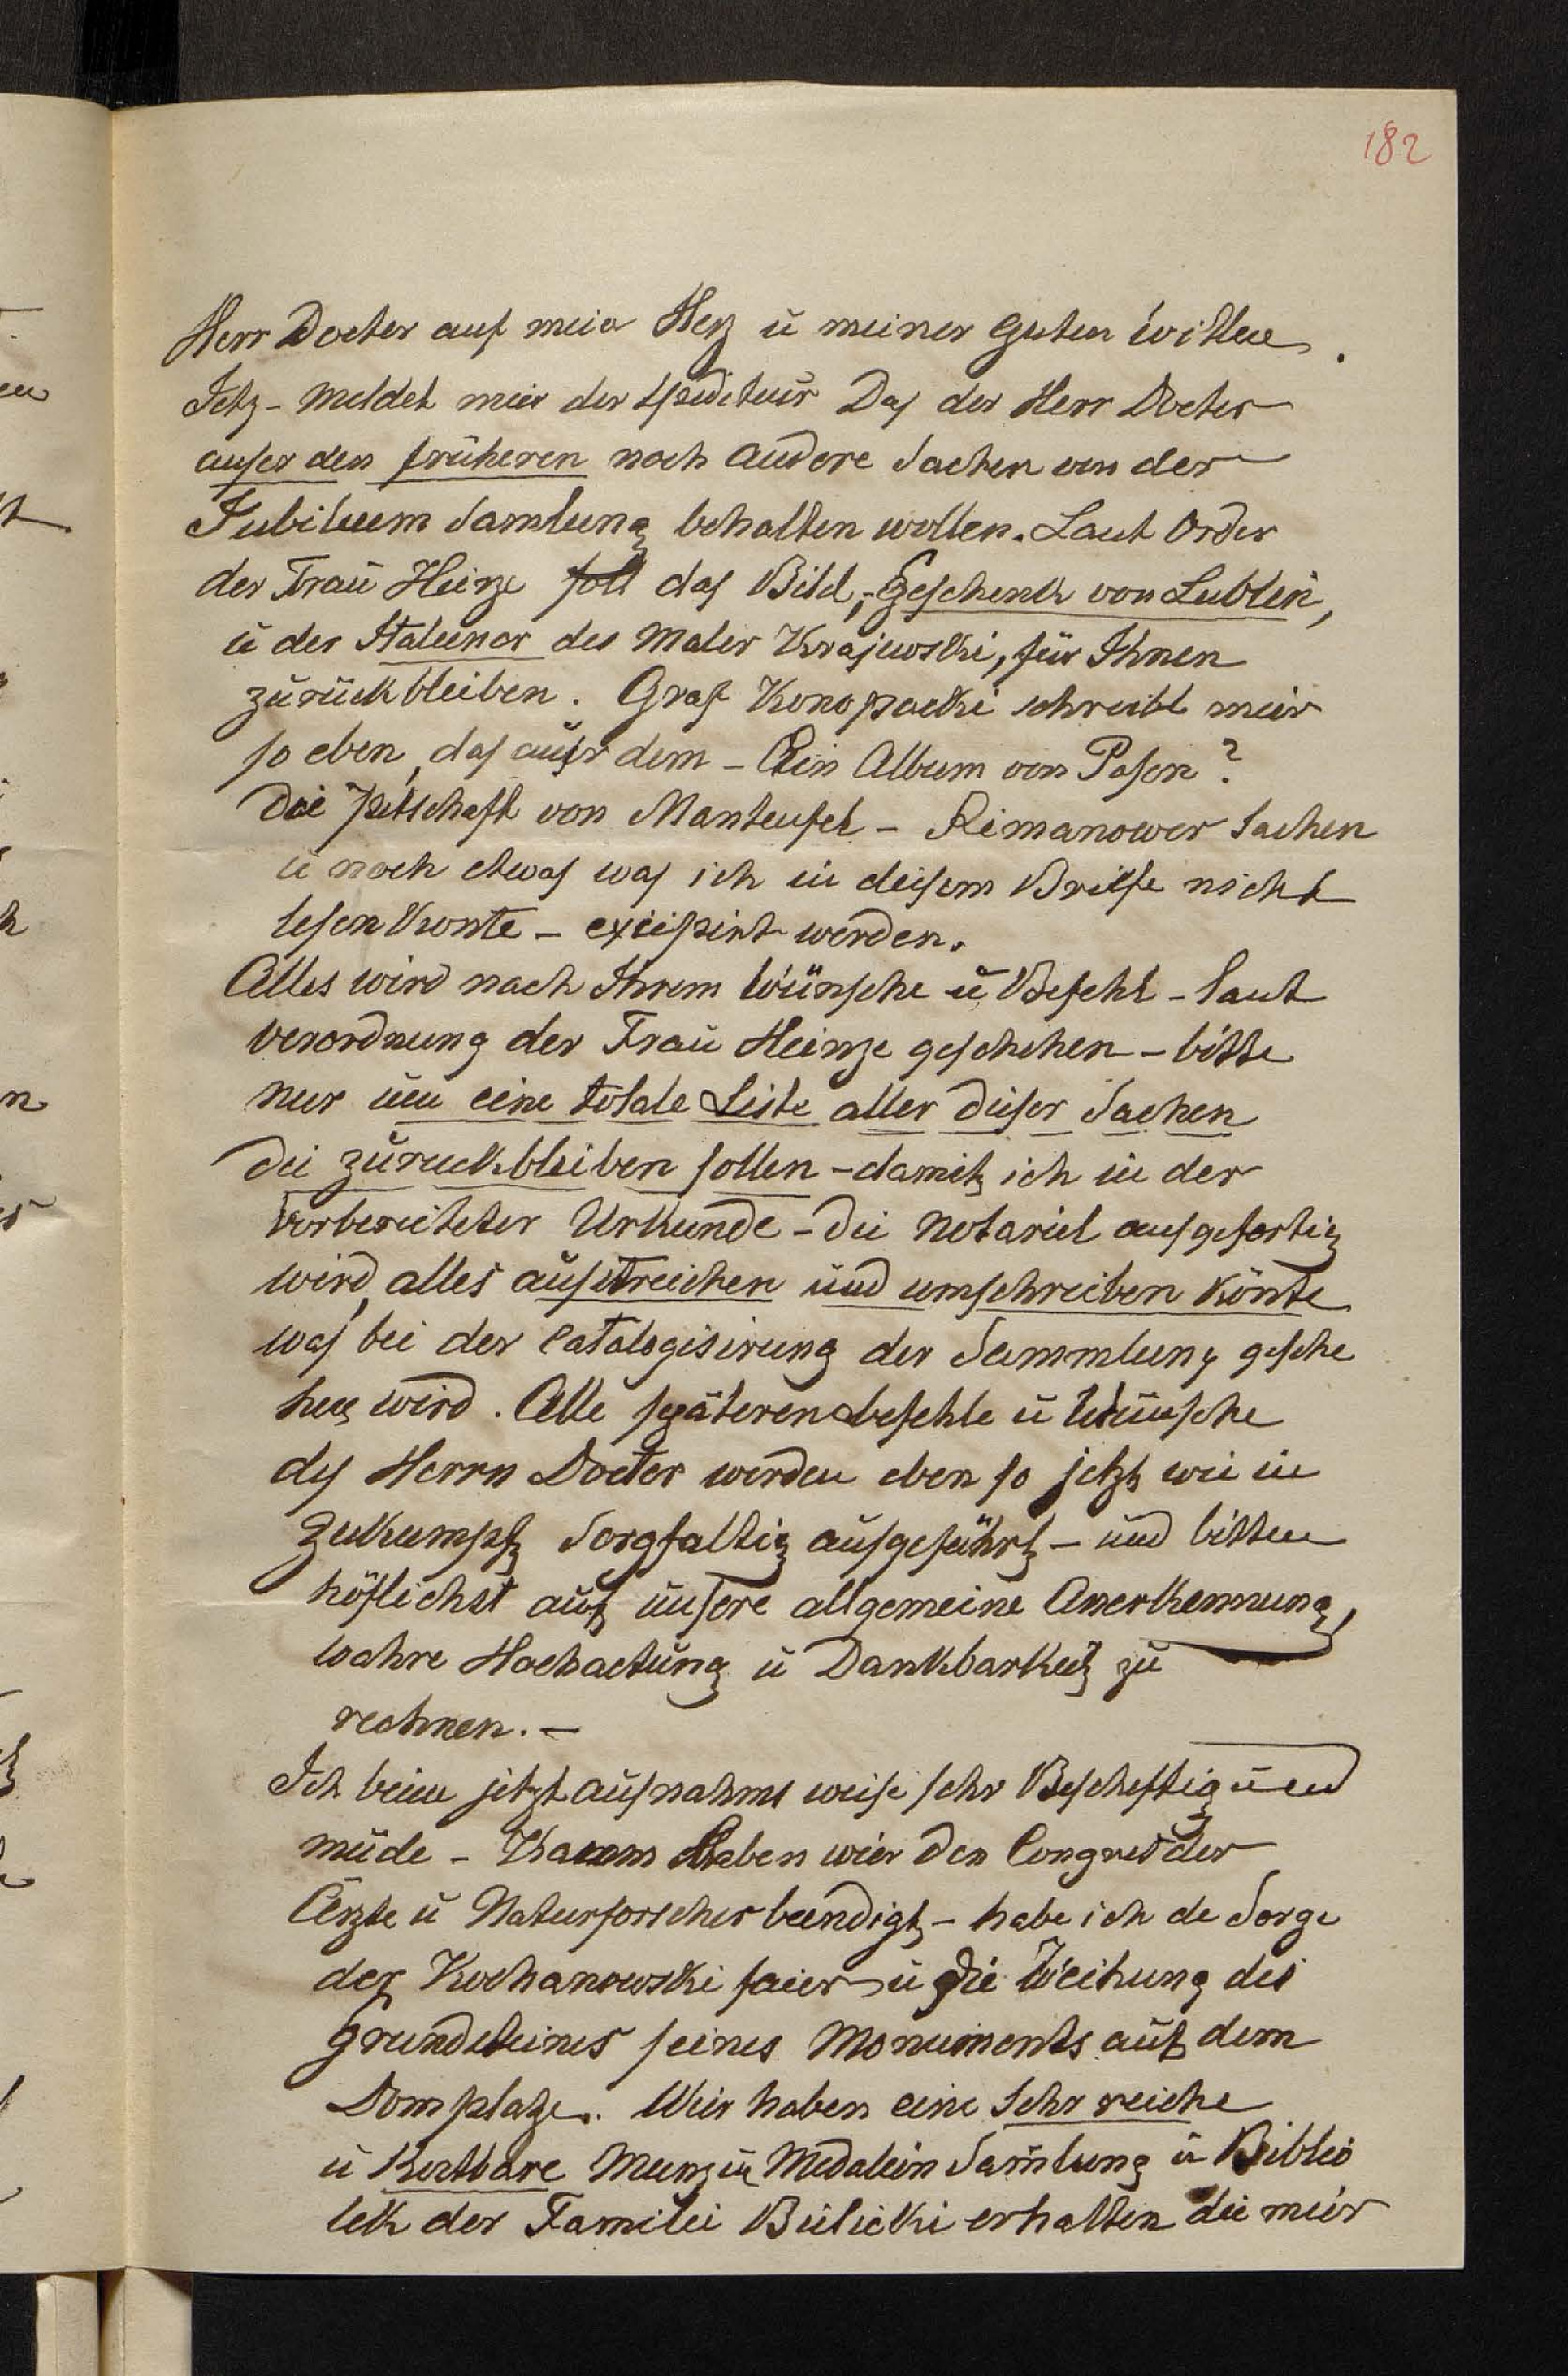 182
Herr Docter auf mein Herz ü meiner guten Willen.
Jetz - meldet mier der Spediteur Das der Herr Docter
auser den früheren noch andere Sachen von der
Jubileum Samlung behalten wollen. Laut Order
der Frau Heinze soll das Bild, Geschenk von Lublin,
ü der Italiener des Maler Krajewski, für Ihnen
zurückbleiben. Graf Konopacki schreibt mier
so eben, das auser dem - Ein Album von Posen?
Die Petschaft von Manteufel - Rimanower Sachen
ü noch etwas was ich in deisem Briefe nicht
lesen Konte - excipirt werden.
Alles wird nach Ihrem Wünsche ü Befehl - laut
verordnung der Frau Heinze geschehen - bitte
nur um eine totale Liste aller dieser Sachen
die zuruckbleiben sollen - damit ich in der
vorbereiteter Urkunde - die Notariel ausgefertig
wird, alles ausstreichen und umschreiben könte
was bei der Catalogisirung der Sammlung gesche
hen wird. Alle späteren befehle ü Wünsche
des Herrn Docter werden eben so jetzt wie in
Zukumpft Sorgfaltig ausgeführt - und bitten
höflichst auf unsere allgemeine Anerkennung,
wahre Hochactung ü Dankbarkeit zu
rechnen. -
Ich beien jetzt ausnahms weise sehr Bescheftig und
müde - Kaum haben wier den Congres der
Ärzte ü Naturforscher beendigt - habe ich de Sorge
der Kochanowski faier ü die Weihung des
Grundsteines seines Monuments auf dem
Domplatze. Wier haben eine Sehr reiche
ü Kostbare Munz ü Medalein Samlung ü Biblio
tek der Familei Bielicki erhalten die mier